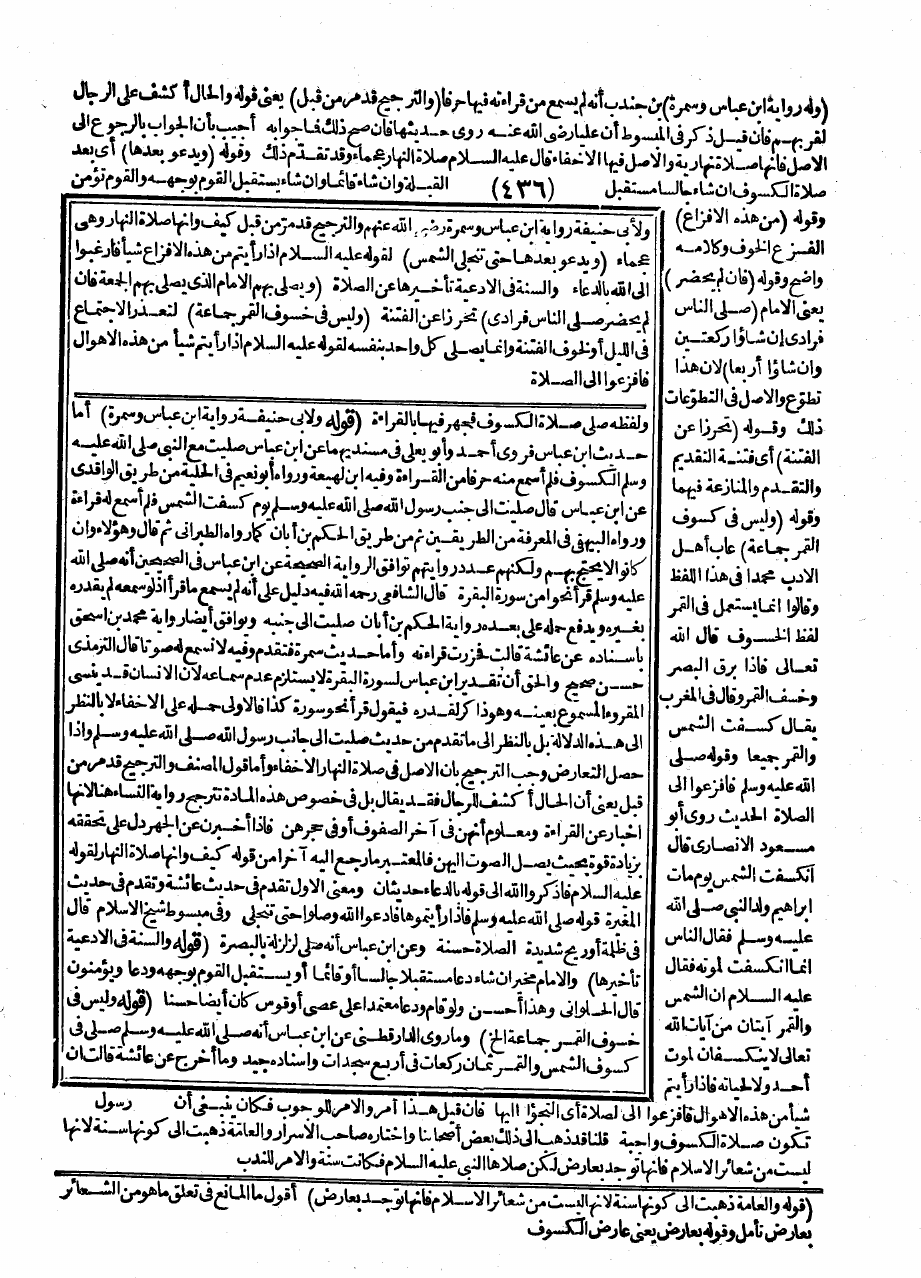 (وله رواية ابن عباس وسمرة) بن جندب أنه لم يسمع من قراءته فيها حرفا (والترجيح قد مر من قبل) يعنى قوله والحال أكشف على الرجال
لقربهم فان قيل ذكر فى المبسوط أن عليا رضى الله عنه روى حديثها فان صح ذلك فما جوابه أجيب بأن الجواب بالرجوع الى
الاصل فانها صلاة نهارية والاصل فيها الاخفاء قال عليه السلام صلاة النهار عجماء وقد تقدم ذلك وقوله (ويدعو بعدها) أى بعد
صلاة الكسوف ان شاء جالسا مستقبل (٤٣٦) القبلة وان شاء قائما وان شاء يستقبل القوم بوجهه والقوم تؤمن
وقوله (من هذه الافزاع)
الفزع الخوف وكلامه
واضح وقوله (فان لم يحضر)
يعنى الامام (صلى الناس
فرادى ان شاؤا ركعتين
وان شاؤا أربعا) لان هذا
تطوع والاصل فى التطوعات
ذلك وقوله (تحرزا عن
الفتنة) أى فتنة التقديم
والتقدم والمنازعة فيهما
وقوله (وليس فى كسوف
القمر جماعة) عاب أهل
الادب محمدا فى هذا اللفظ
وقالوا انما يستعمل فى القمر
لفظ الخسوف قال الله
تعالى فاذا برق البصر
وخسف القمر وقال فى المغرب
يقال كسفت الشمس
والقمر جميعا وقوله صلى
الله عليه وسلم فافزعوا الى
الصلاة الحديث روى أبو
مسعود الانصارى قال
انكسفت الشمس يوم مات
ابراهيم ولد النبى صلى الله
عليه وسلم فقال الناس
انما انكسفت لموته فقال
عليه السلام ان الشمس
والقمر آيتان من آيات الله
تعالى لا ينكسفان لموت
أحد ولا لحياته فاذا رأيتم
ولأبى حنيفة رواية ابن عباس وسمرة رضى الله عنهم والترجيح قد مر من قبل كيف وانها صلاة النهار وهى
عجماء (ويدعو بعدها حتى تنجلى الشمس) لقوله عليه السلام اذا رأيتم من هذه الافزاع شيأ فارغبوا
الى الله بالدعاء والسنة فى الادعية تأخيرها عن الصلاة (ويصلى بهم الامام الذى يصلى بهم الجمعة فان
لم يحضر صلى الناس فرادى) تحرزا عن الفتنة (وليس فى خسوف القمر جماعة) لتعذر الاجتماع
فى الليل أو لخوف الفتنة وانما يصلى كل واحد بنفسه لقوله عليه السلام اذا رأيتم شيأ من هذه الاهوال
فافزعوا الى الصلاة
ولفظه صلى صلاة الكسوف فجهر فيها بالقراءة (قوله ولابى حنيفة رواية ابن عباس وسمرة) أما
حديث ابن عباس فروى أحمد وأبو يعلى فى مسنديهما عن ابن عباس صليت مع النبى صلى الله عليه
وسلم الكسوف فلم أسمع منه حرفا من القراءة وفيه ابن لهيعة ورواه أبو نعيم فى الحلية من طريق الواقدى
عن ابن عباس قال صليت الى جنب رسول الله صلى الله عليه وسلم يوم كسفت الشمس فلم أسمع له قراءة
ورواه البيهقى فى المعرفة من الطريقين ثم من طريق الحكم بن أبان كما رواه الطبرانى ثم قال وهؤلاء وان
كانوا لا يحتج بهم ولكنهم عدد روايتهم توافق الرواية الصحيحة عن ابن عباس فى الصحيحين أنه صلى الله
عليه وسلم قرأ نحوا من سورة البقرة قال الشافعى رحمه الله فيه دليل على أنه لم يسمع ما قرأ اذ لو سمعه لم يقدره
بغيره ويدفع حمله على بعده رواية الحكم بن أبان صليت الى جنبه ويوافق أيضا رواية محمد بن اسحق
باسناده عن عائشة قالت فحزرت قراءته وأما حديث سمرة فتقدم وفيه لا نسمع له صوتا قال الترمذى
حسن صحيح والحق أن تقدير ابن عباس لسورة البقرة لا يستلزم عدم سماعه لان الانسان قد ينسى
المقروء المسموع بعينه وهو ذا كر لقدره فيقول قرأ نحو سورة كذا فالاولى حمله على الاخفاء لا بالنظر
الى هذه الدلالة بل بالنظر الى ما تقدم من حديث صليت الى جانب رسول الله صلى الله عليه وسلم واذا
حصل التعارض وجب الترجيح بان الاصل فى صلاة النهار الاخفاء وأما قول المصنف والترجيح قد مر من
قبل يعنى أن الحال أكشف للرجال فقد يقال بل فى خصوص هذه المادة تترجح رواية النساء هنا لانها
اخبار عن القراءة ومعلوم أنهن فى آخر الصفوف أو فى حجرهن فاذا أخبرن عن الجهر دل على تحققه
بزيادة قوة بحيث يصل الصوت اليهن فالمعتبر ما رجع اليه آخرا من قوله كيف وانها صلاة النهار لقوله
عليه السلام فاذكروا الله الى قوله بالدعاء حديثان ومعنى الاول تقدم فى حديث عائشة وتقدم فى حديث
المغيرة قوله صلى الله عليه وسلم فاذا رأيتموها فادعوا الله وصلوا حتى تنجلى وفى مبسوط شيخ الاسلام قال
فى ظلمة أو ريح شديدة الصلاة حسنة وعن ابن عباس أنه صلى لزلزلة بالبصرة (قوله والسنة فى الادعية
تأخيرها) والامام مخير ان شاء دعا مستقبلا جالسا أو قائما أو يستقبل القوم بوجهه ودعا ويؤمنون
قال الحلوانى وهذا أحسن ولو قام ودعا معتمدا على عصى أو قوس كان أيضا حسنا (قوله وليس فى
خسوف القمر جماعة الخ) وما روى الدارقطنى عن ابن عباس أنه صلى الله عليه وسلم صلى فى
كسوف الشمس والقمر ثمان ركعات فى أربع سجدات واسناده جيد وما أخرج عن عائشة قالت ان
رسول
شيأ من هذه الاهوال فافزعوا الى الصلاة أى التجؤا اليها فان قيل هذا أمر والامر للوجوب فكان ينبغى أن
تكون صلاة الكسوف واجبة قلنا قد ذهب الى ذلك بعض أصحابنا واختاره صاحب الأسرار والعامة ذهبت الى كونها سنة لانها
ليست من شعائر الاسلام فانها توجد بعارض لكن صلاها النبى عليه السلام فكانت سنة والامر للندب
(قوله والعامة ذهبت الى كونها سنة لانها ليست من شعائر الاسلام فانها توجد بعارض) أقول ما المانع فى تعلق ما هو من الشعائر
بعارض تأمل وقوله بعارض يعنى عارض الكسوف